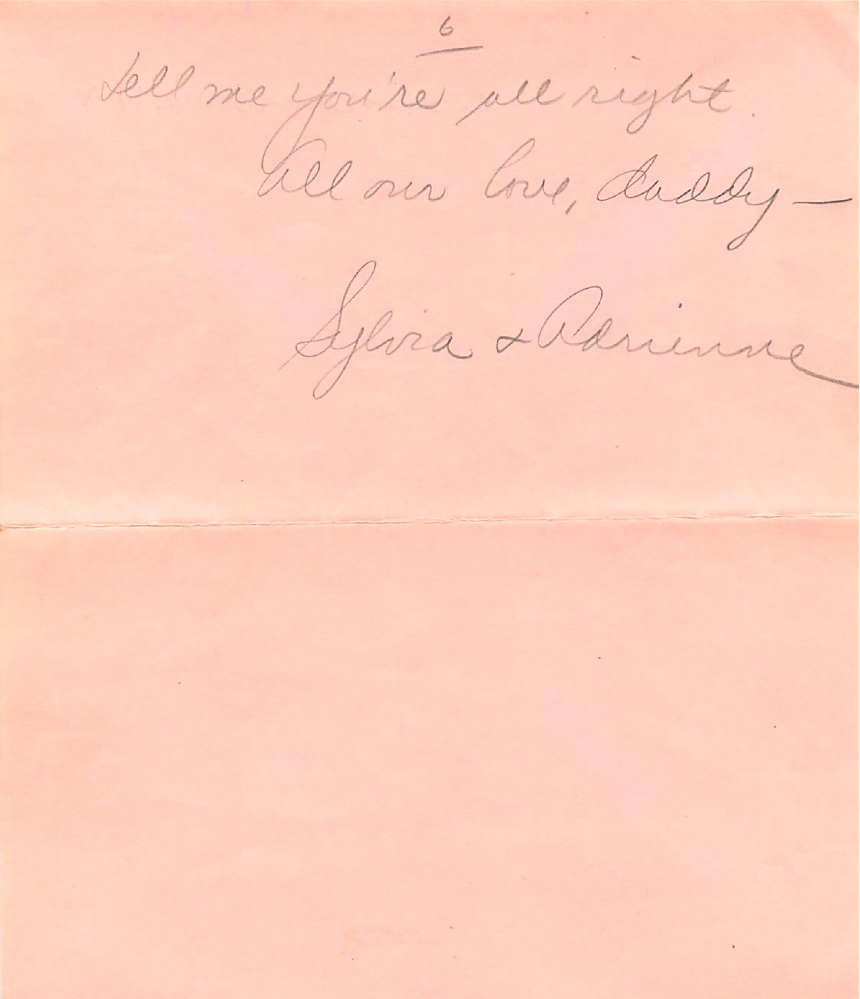 6
tell me you're all right.
All our love, daddy —
Sylvia & Adrienne